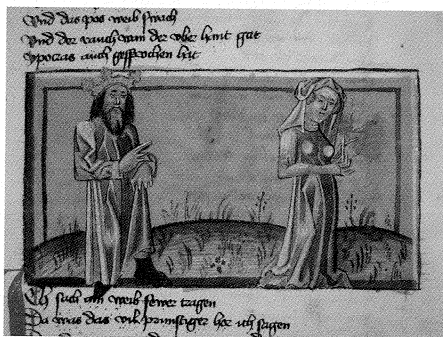 Und das pos weib swach
Und der rauch wan der uber hant gat
ypocras auch gesprochen hat
Ich sach ain weib fewer tragen
Da was das vil prinstiger hor ich sagen